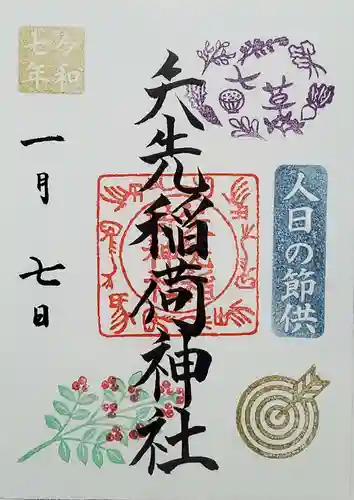 七草
人日の節供
矢先稲荷神社
令和
七年
一月 七日